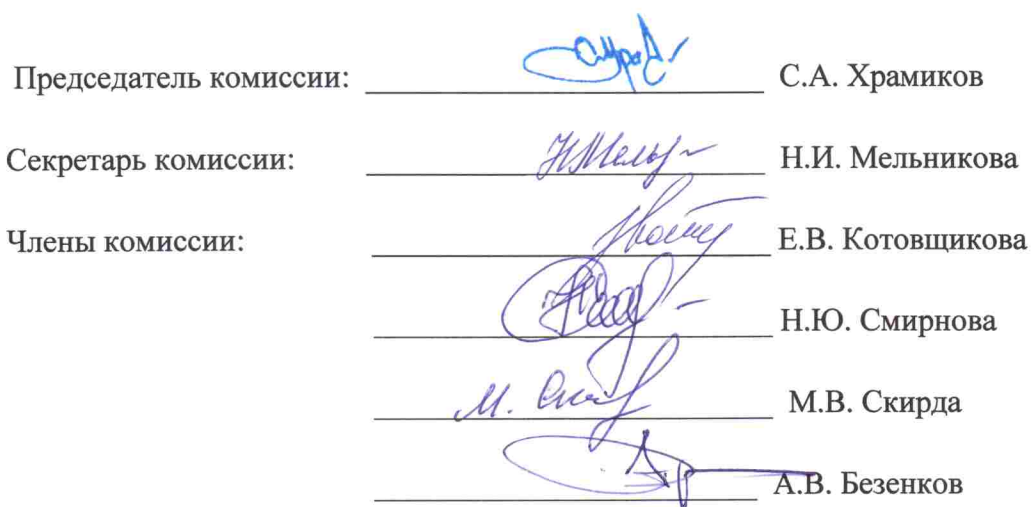 Председатель комиссии: С.А. Храмиков
Секретарь комиссии: Н.И. Мельникова
Члены комиссии: Е.В. Котовщикова
Н.Ю. Смирнова
М.В. Скирда
А.В. Безенков